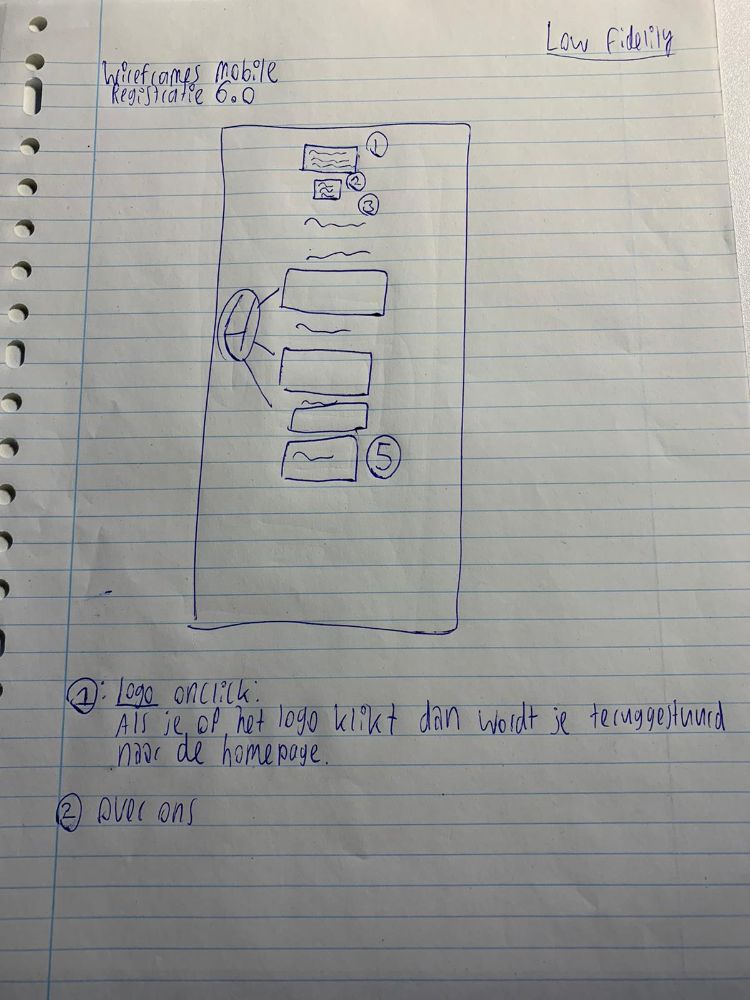 Low Fidelily
Wireframes Mobile
Registratie 6.0
1
2
3
4
5
1: Logo onclick:
Als je op het logo klikt dan wordt je teruggestuurd
naar de homepage.
2 over ons